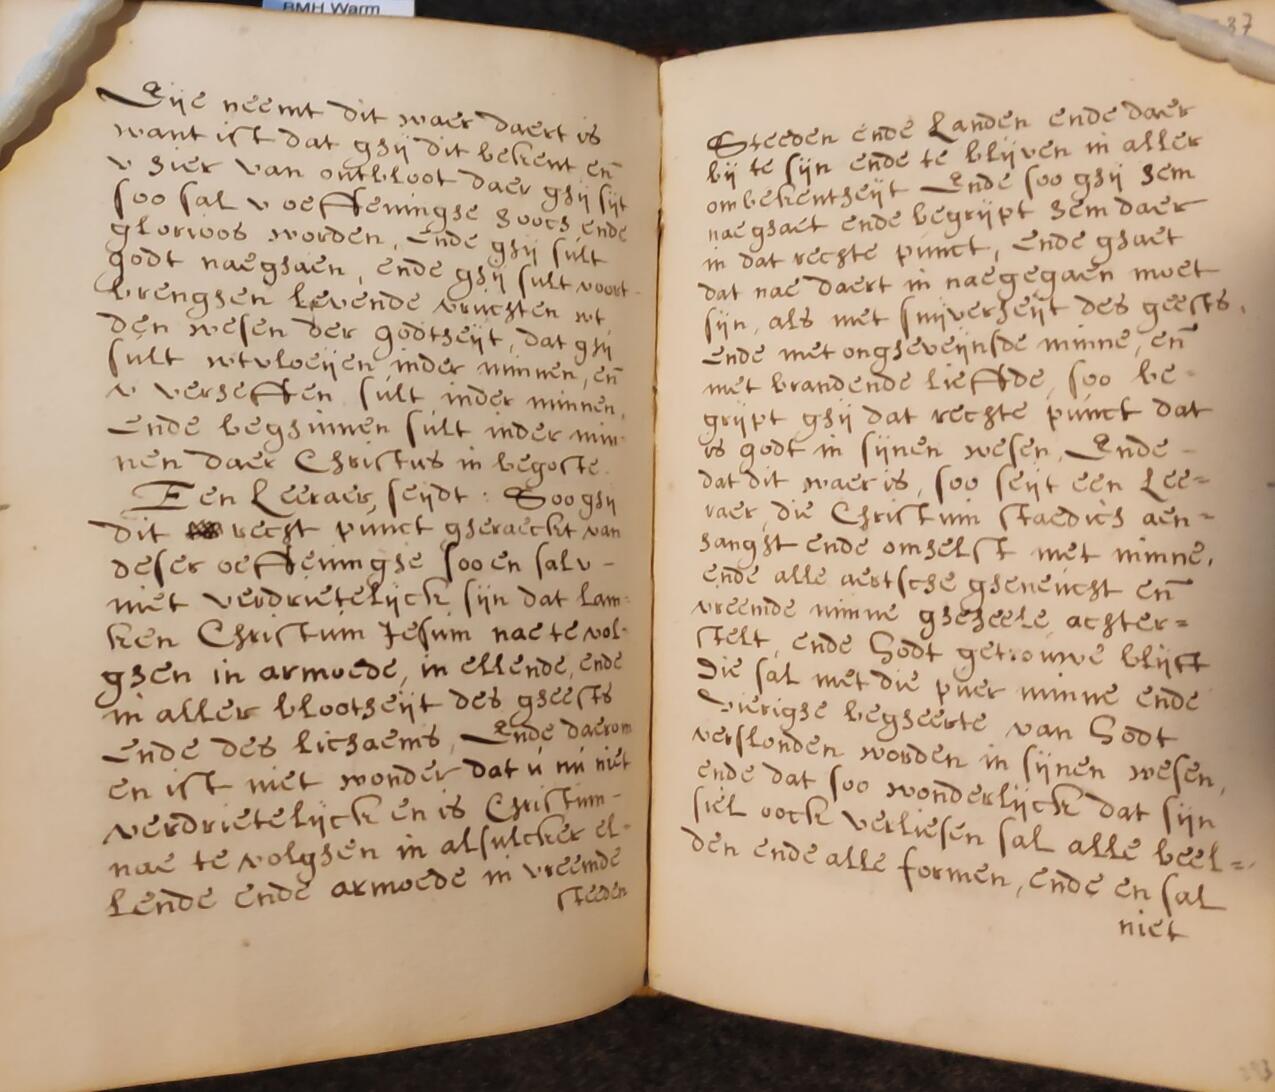 BMH Warm
Eije neemt dit waer daert is
want ist dat ghij dit bekent, en̄
v hier van ontbloot daer ghij sijt
soo sal v oeffeninghe hooch ende
glorioos worden, ende ghij sult
godt naeghaen, ende ghij sult voort-
brenghen levende vruchten wt
den wesen der godtheijt, dat ghij
sult wtvloeijen inder minnen, en̄
v verheffen sult inder minnen,
ende beghinnen sult inder min-
nen daer Christus in begoste.
Een Leeraer, seijdt: Soo ghij
dit recht punct gheraeckt van
deser oeffeninghe soo en sal v -
niet verdrietelijck sijn dat lam-
ken Christum Jesum nae te vol-
ghen in armoede, in ellende, ende
in aller blootheijt des gheests
ende des lichaems, Ende daerom
en ist niet wonder dat u nu niet
verdrietelijck en is Christum -
nae te volghen in alsulcker el-
lende ende armoede in vreemde
steeden
37
Steeden ende Landen ende daer
bij te sijn ende te blijven in aller
ombekentheijt Ende soo ghij hem
naeghaet ende begrijpt hem daer
in dat rechte punct, ende ghaet
dat nae daert in naegegaen moet
sijn, als met suijverheijt des geests,
ende met ongheveijnsde minne, en̄
met brandende lieffde, soo be-
grijpt ghij dat rechte punct dat
is godt in sijnen wesen, Ende -
dat dit waer is, soo seijt een Lee=
raer, die Christum staedich aen=
hanght ende omhelst met minne,
ende alle aertsche gheneucht en̄
vreemde minne gheheele achter=
stelt, ende Godt getrouwe blijft
Die sal met die puer minne ende
vierighe begheerte van Godt
verslonden worden in sijnen wesen,
ende dat soo wonderlijck dat sijn
siel oock verliesen sal alle beel=
den ende alle formen, ende en sal
niet